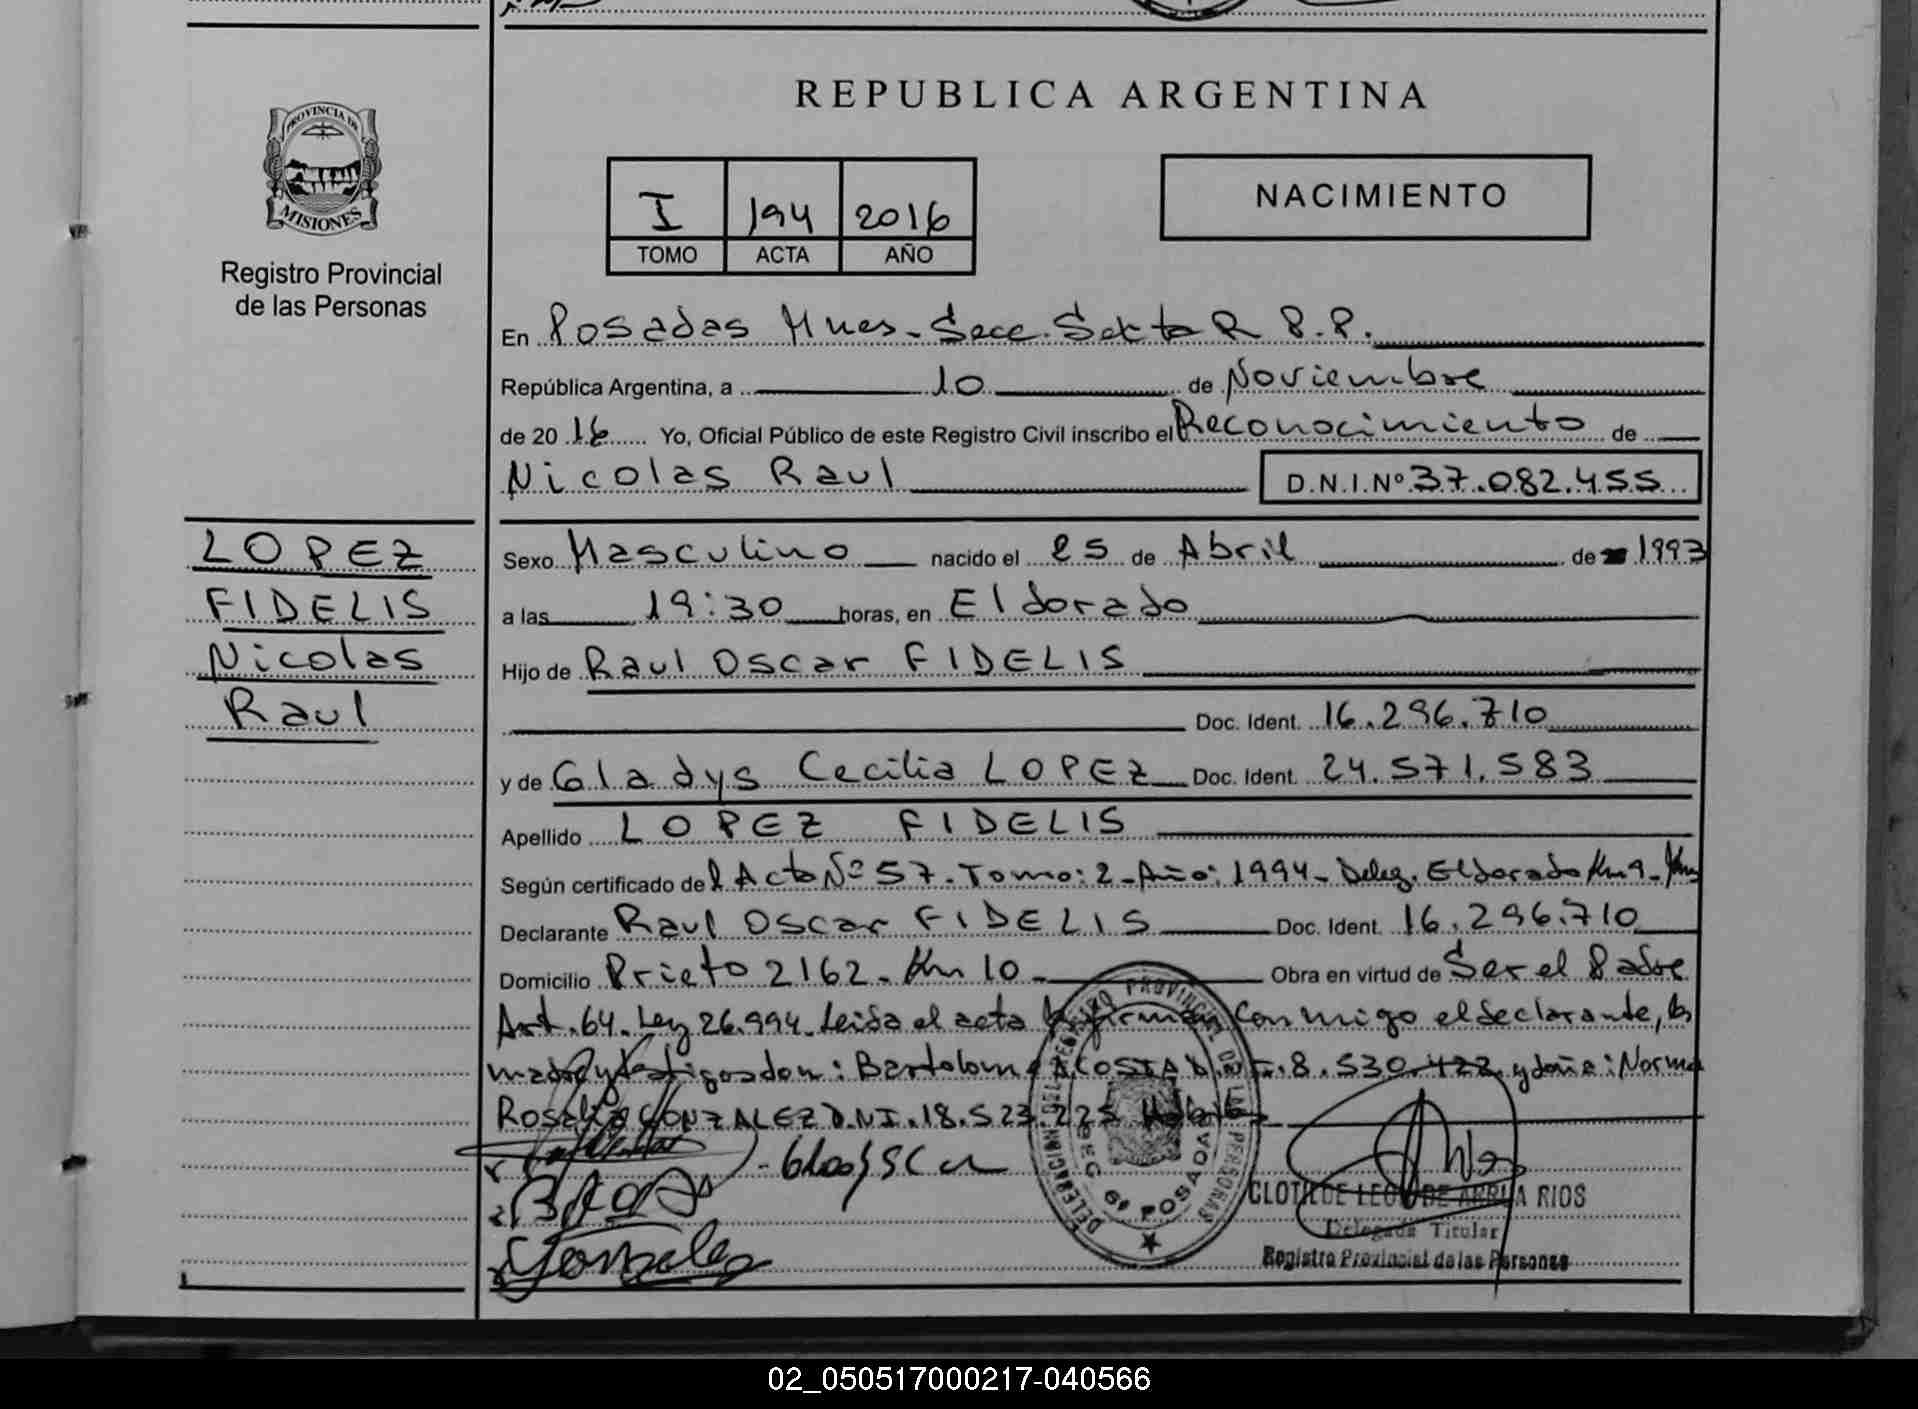 REPUBLICA ARGENTINA
PROVINCIA DE
MISIONES
Registro Provincial
de las Personas
I 194 2016
TOMO ACTA AÑO
NACIMIENTO
En Posadas Mnes. Secc. Sexta R.P.P.
República Argentina, a 10 de Noviembre
de 20 16 Yo, Oficial Público de este Registro Civil inscribo el Reconocimiento de
Nicolas Raul D.N.I.Nº 37.082.455
LOPEZ
FIDELIS
Nicolas
Raul
Sexo Masculino nacido el 25 de Abril de 1993
a las 19:30 horas, en Eldorado
Hijo de Raul Oscar FIDELIS
Doc. Ident. 16.296.710
y de Gladys Cecilia LOPEZ Doc. Ident. 24.571.583
Apellido LOPEZ FIDELIS
Según certificado del Acta Nº 57. Tomo: 2 - Año: 1994 - Deleg. Eldorado Km 9 -
Declarante Raul Oscar FIDELIS Doc. Ident. 16.296.710
Domicilio Prieto 2162 - Km 10 - Obra en virtud de Ser el Padre
Art. 64. Ley 26.994. Leida el acta la firman conmigo el declarante, la
madre y testigos don: Bartolome ACOSTA D.N.I. 8.530.422 y doña: Norma
Rosalia GONZALEZ D.N.I. 18.523.225
DELEGACION DEL REGISTRO PROVINCIAL DE LAS PERSONAS
SECC 6ª POSADAS
Gonzalez
CLOTILDE LEO DE ARRUA RIOS
Delegada Titular
Registro Provincial de las Personas
02_050517000217-040566